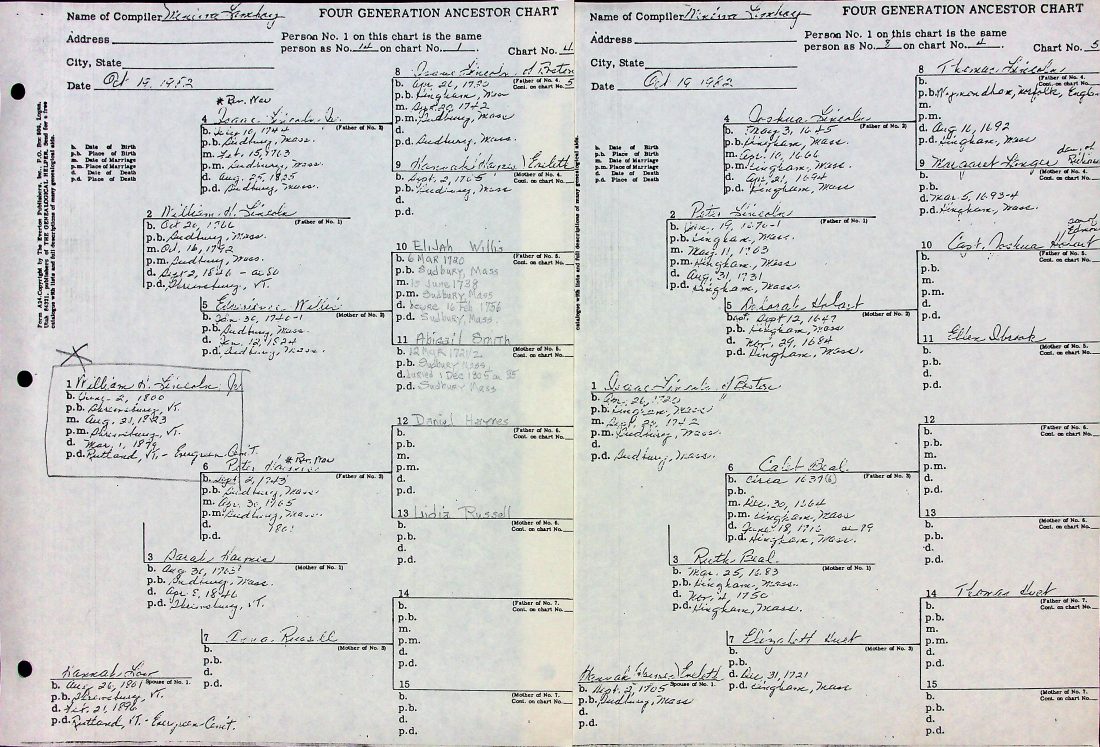 Name of Compiler
FOUR GENERATION ANCESTOR CHART
Address
Person No. 1 on this chart is the same
person as No. 14 on chart No. 1.
Chart No. 4
City, State
Date Oct 19, 1982
* Rev. War
b. Date of Birth
p.b. Place of Birth
m. Date of Marriage
p.m. Place of Marriage
d. Date of Death
p.d. Place of Death
8 Isaac Lincoln of Boston
(Father of No. 4,
Cont. on chart No. 5
b.
p.b. Hingham, Mass
m. 1742
p.m. Sudbury, Mass
d.
p.d. Sudbury, Mass.
4 Isaac Lincoln Jr.
(Father of No. 2)
b. 1744
p.b. Sudbury, Mass.
m. Feb. 15, 1763
p.m. Sudbury, Mass.
d. Aug. 25, 1825
p.d. Sudbury, Mass.
9 Hannah Eveleth
(Mother of No. 4,
Cont. on chart No.
b. Sept. 2, 1705
p.b. Sudbury, Mass
d.
p.d.
2 William H. Lincoln
(Father of No. 1)
b. Oct 20, 1766
p.b. Sudbury, Mass.
m. Oct. 16, 1792
p.m. Sudbury, Mass.
d. Sept 2, 1846 - ae 80
p.d. Shrewsbury, VT.
10 Elijah Willis
(Father of No. 5,
Cont. on chart No.
b. 6 MAR 1720
p.b. Sudbury, Mass
m. 15 June 1738
p.m. Sudbury, Mass
d. 16 Feb 1756
p.d. Sudbury, Mass.
5 Willis
(Mother of No. 2)
b. Jan. 30, 1740-1
p.b. Sudbury, Mass.
d. Jan. 12, 1824
p.d. Sudbury, Mass.
11 Abigail Smith
(Mother of No. 5,
Cont. on chart No.
b. 12 Mar 1721/2
p.b. Sudbury, Mass.
d. buried 1 Dec 1805 ae 85
p.d. Sudbury Mass
1 William H. Lincoln Jr.
b. June 2, 1800
p.b. Shrewsbury, VT.
m. Aug. 21, 1823
p.m. Shrewsbury, VT.
d. Mar. 1, 1879
p.d. Rutland, VT. - Evergreen Cem't.
12 Daniel Haynes
(Father of No. 6,
Cont. on chart No.
b.
p.b.
m.
p.m.
d.
p.d.
* Rev. War
6 Peter Haynes
(Father of No. 3)
b. Sept. 2, 1743
p.b. Sudbury, Mass.
m. Apr. 30, 1765
p.m. Sudbury, Mass.
d.
p.d.
13 Lydia Russell
(Mother of No. 6,
Cont. on chart No.
b.
p.b.
d.
p.d.
3 Sarah Haynes
(Mother of No. 1)
b. Aug 31,
p.b. Sudbury, Mass.
d. Apr 8, 1846
p.d. Shrewsbury, VT.
14
(Father of No. 7,
Cont. on chart No.
b.
p.b.
m.
p.m.
d.
p.d.
7 Anna Russell
(Mother of No. 3)
b.
p.b.
d.
p.d.
15
(Mother of No. 7,
Cont. on chart No.
b.
p.b.
d.
p.d.
Hannah
Spouse of No. 1.
b. Aug 26, 1801
p.b. Shrewsbury, VT.
d. 21, 1896
p.d. Rutland, VT. - Evergreen Cem't.
Name of Compiler
FOUR GENERATION ANCESTOR CHART
Address
Person No. 1 on this chart is the same
person as No. 8 on chart No. 4.
Chart No. 5
City, State
Date Oct 19, 1982
b. Date of Birth
p.b. Place of Birth
m. Date of Marriage
p.m. Place of Marriage
d. Date of Death
p.d. Place of Death
8 Thomas Lincoln
(Father of No. 4,
Cont. on chart No.
b.
p.b. Wymondham, Norfolk, England
m.
p.m.
d. Aug 16, 1692
p.d. Hingham, Mass.
4 Joshua Lincoln
(Father of No. 2)
b. May 3, 1645
p.b. Hingham, Mass.
m. Apr. 10, 1666
p.m. Hingham, Mass.
d. Apr. 21, 1694
p.d. Hingham, Mass
9 Margaret Langer dau. of
(Mother of No. 4,
Cont. on chart No.
b.
p.b.
d. Mar. 5, 1693-4
p.d. Hingham, Mass.
2 Peter Lincoln
(Father of No. 1)
b. Jan. 19, 1670-1
p.b. Hingham, Mass.
m. May 11, 1703
p.m. Hingham, Mass
d. Aug. 31, 1731
p.d. Hingham, Mass.
10 Capt. Joshua Hobart son of
(Father of No. 5,
Cont. on chart No.
b.
p.b.
m.
p.m.
d.
p.d.
5 Deborah Hobart
(Mother of No. 2)
bapt. Sept 12, 1647
p.b. Hingham, Mass
d. Nov. 29, 1684
p.d. Hingham, Mass.
11 Ellen Ibrook
(Mother of No. 5,
Cont. on chart No.
b.
p.b.
d.
p.d.
1 Isaac Lincoln of Boston
b.
p.b. Hingham, Mass
m. 1742
p.m. Sudbury, Mass.
d.
p.d. Sudbury, Mass.
12
(Father of No. 6,
Cont. on chart No.
b.
p.b.
m.
p.m.
d.
p.d.
6 Caleb Beal
(Father of No. 3)
b. Circa 1637(6)
p.b.
m. Dec. 30, 1664
p.m. Hingham, Mass
d. June 18, 1716 ae 79
p.d. Hingham, Mass.
13
(Mother of No. 6,
Cont. on chart No.
b.
p.b.
d.
p.d.
3 Ruth Beal
(Mother of No. 1)
b. Mar. 25, 1683
p.b. Hingham, Mass.
d. Nov. 4, 1750
p.d. Hingham, Mass.
14 Thomas Huet
(Father of No. 7,
Cont. on chart No.
b.
p.b.
m.
p.m.
d.
p.d.
7 Elizabeth Huet
(Mother of No. 3)
b.
p.b.
d. Dec. 31, 1721
p.d. Hingham, Mass
15
(Mother of No. 7,
Cont. on chart No.
b.
p.b.
d.
p.d.
Hannah Eveleth
Spouse of No. 1.
b. Sept. 2, 1705
p.b. Sudbury, Mass
d.
p.d.